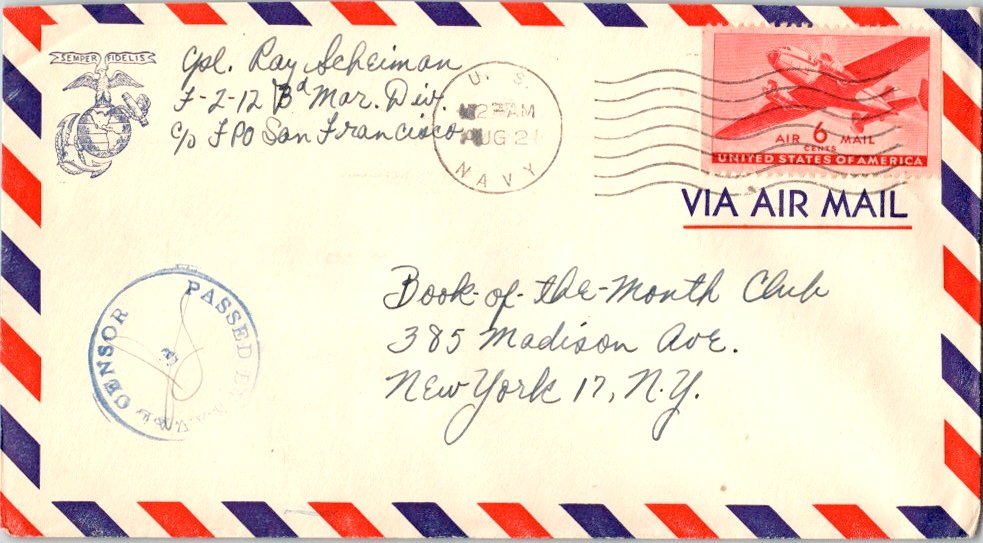 SEMPER FIDELIS
Cpl. Ray Scheiman
F-2-12 3d Mar. Div.
c/o FPO San Francisco
U. S.
AM
AUG 2
NAVY
AIR 6 MAIL
CENTS
UNITED STATES OF AMERICA
VIA AIR MAIL
Book-of-the-Month Club
385 Madison Ave.
New York 17, N.Y.
PASSED
CENSOR